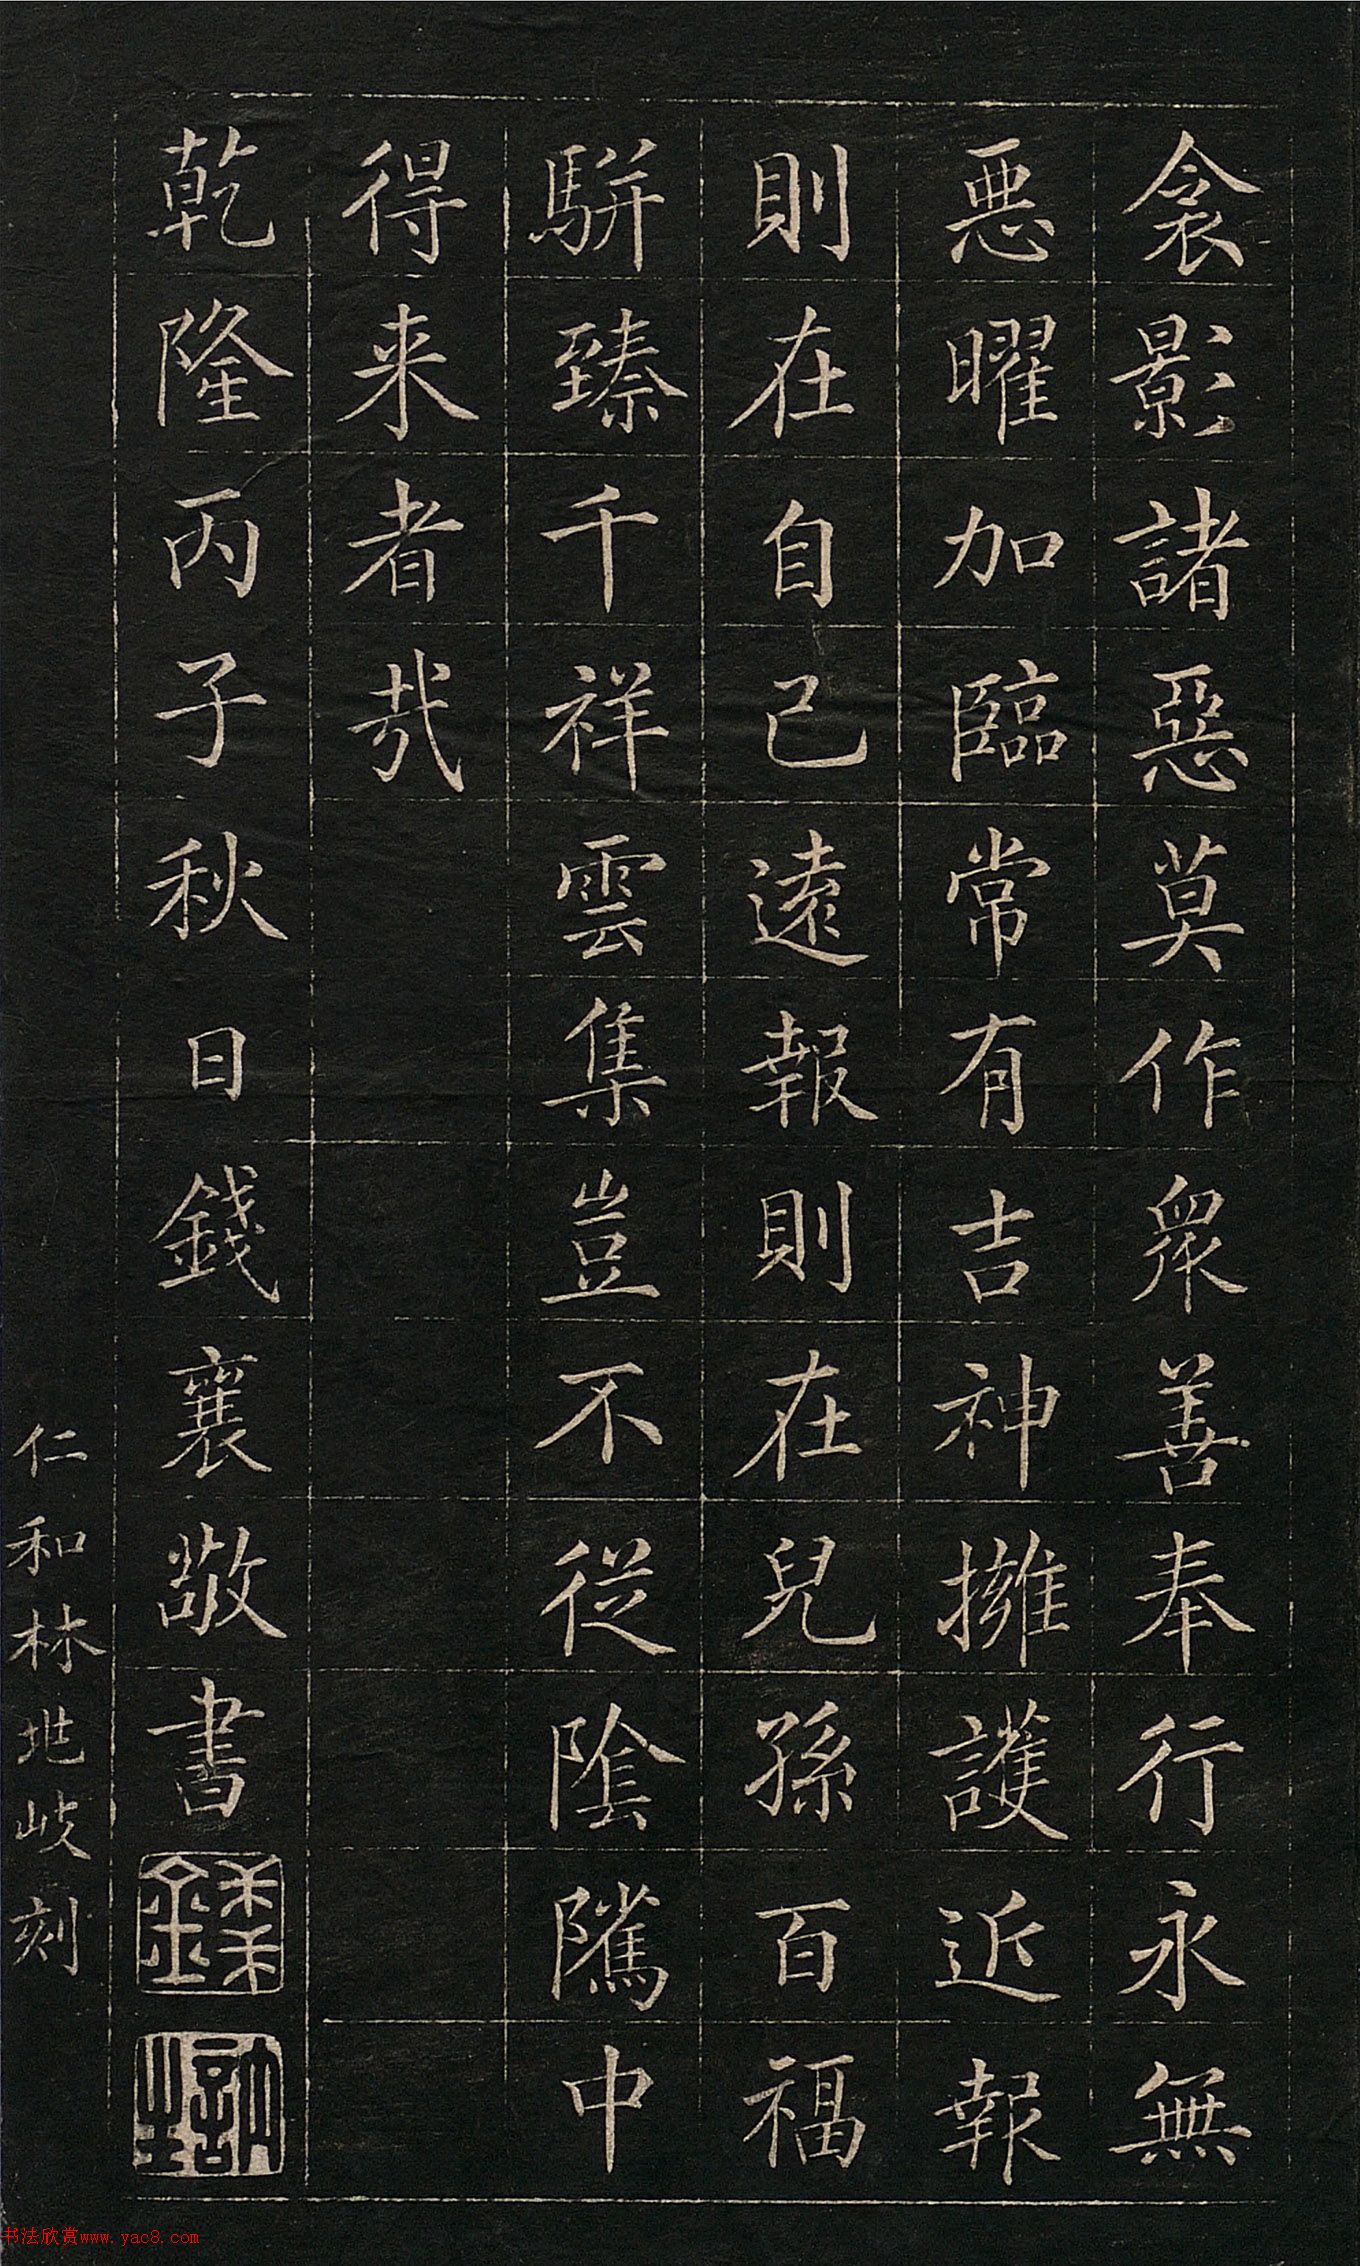 衾影諸惡莫作衆善奉行永無
惡曜加臨常有吉神擁護近報
則在自己遠報則在兒孫百福
駢臻千祥雲集豈不從陰隲中
得来者哉
乾隆丙子秋日錢襄敬書
仁和林兆岐刻
书法欣赏www.yac8.com